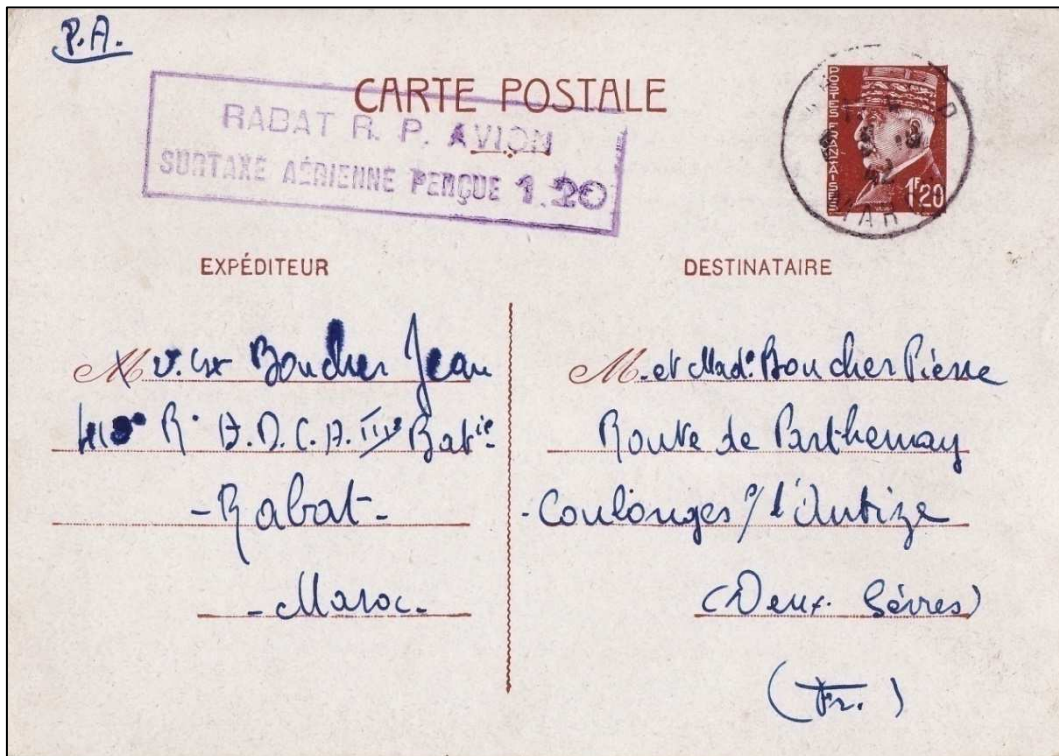 P.A.
CARTE POSTALE
RABAT R. P. AVION
SURTAXE AÉRIENNE PERÇUE 1.20
POSTES FRANÇAISES
1F20
EXPÉDITEUR
M Boucher Jean
R. A. D. C. A. IIIe Batie
- Rabat -
- Maroc -
DESTINATAIRE
M. et Made. Boucher Pierre
Route de Parthenay
- Coulonges s/ l'Autize
(Deux. Sèvres)
(Fr.)